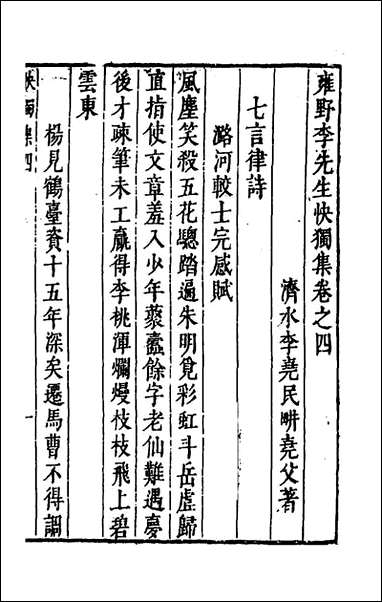 雍野李先生快獨集卷之四
濟水李堯民畊堯父著
七言律詩
潞河較士完感賦
風塵笑殺五花驄踏遍朱明覓彩虹斗岳虛歸
直指使文章羞入少年叢蠹餘字老仙難遇夢
後才疎筆未工贏得李桃渾爛熳枝枝飛上碧
雲東
楊見鶴臺資十五年深矣遷馬曹不得調
快獨集四
一